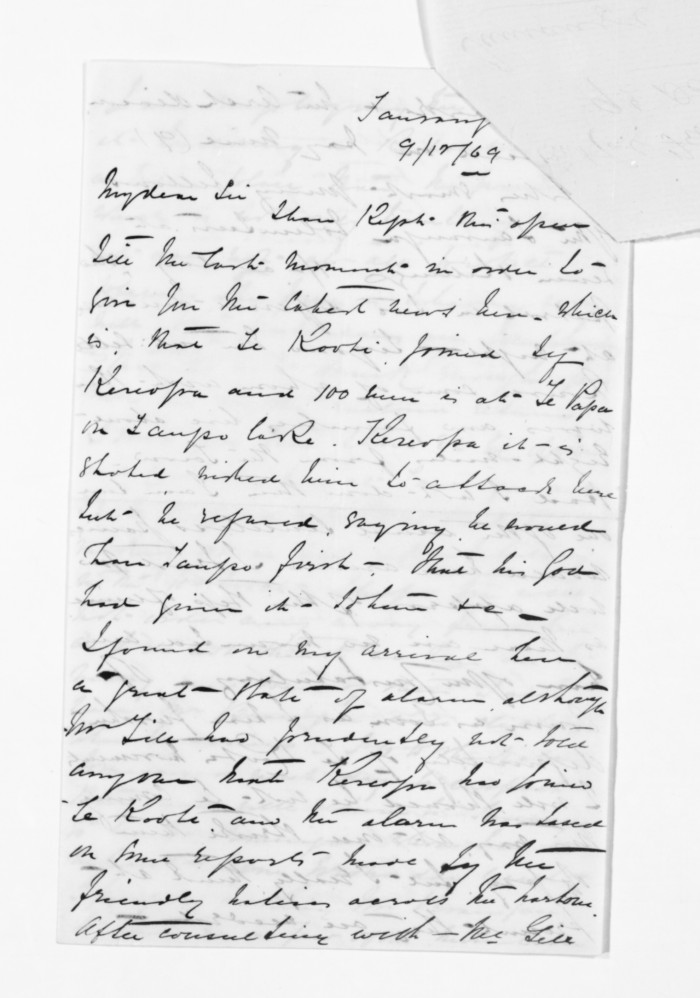 Taurang
9/12/69
My dear Sir
I have kept this open
till the last moment in order to
give you the latest news here. which
is, that Te Kooti, joined by
Kereopa and 100 men is at Te Papa
on Taupo lake. Kereopa it is
stated wished him to attack here
but he refused, saying he would
have Taupo first - that his God
had given it to him &c -
I found on my arrival here
a great state of alarm, although
Mr Gill had prudently not told
anyone that Kereopa has joined
Te Kooti and the alarm was based
on some reports made by the
friendly natives across the harbour.
After consulting with Mr Gill